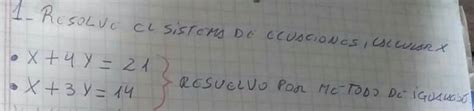 1_ RESOLVE EL SISTEMA DE ECUACIONES, CALCULAR X
• X + 4 Y = 21
• X + 3 Y = 14
RESUELVO POR METODO DE IGUALACION